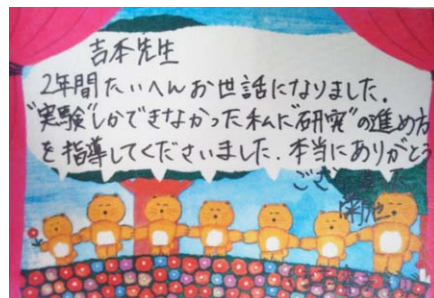 吉本先生
2年間たいへんお世話になりました.
"実験"しかできなかった私に"研究"の進め方
を指導してくださいました.本当にありがとう
ござ